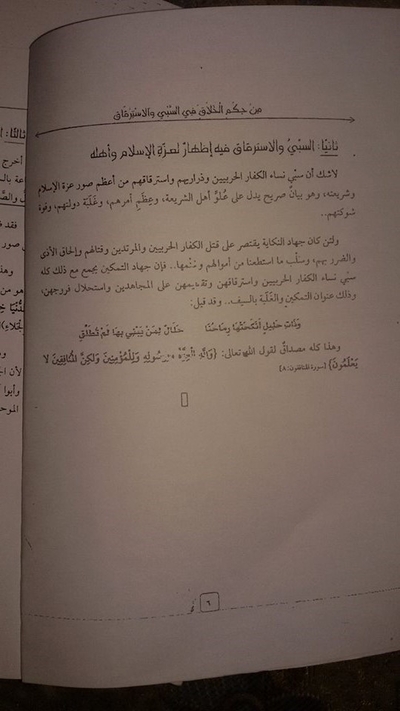 من حكم الخلاق في السبي والاسترقاق
ثانيًا: السبيُ والاسترقاق فيه إظهارٌ لعزة الإسلام وأهله
لا شك أن سبْي نساء الكفار الحربيين وذراريهم واسترقاقهم من أعظم صور عزة الإسلام
وشريعته، وهو بيانٌ صريح يدل على عُلوِّ أهل الشريعة، وعِظَمِ أمرهم، وغَلَبَة دولتهم، وقوة
شوكتهم..
ولئن كان جهاد النكاية يقتصر على قتل الكفار الحربيين والمرتدين وقتالهم وإلحاق الأذى
والضرر بهم، وسلْب ما استطعنا من أموالهم وغُنْمها.. فإن جهاد التمكين يجمع مع ذلك كله
سبْي نساء الكفار الحربيين واسترقاقهن وتقسيمهن على المجاهدين واستحلال فروجهن،
وذلك عنوان التمكين والغَلَبة بالسيف.. وقد قيل:
وذات حليل أنكحتها رماحنا حلال لمن يبني بها لم تطلق
وهذا كله مصداقٌ لقول الله تعالى: {وَلِلَّهِ الْعِزَّةُ وَلِرَسُولِهِ وَلِلْمُؤْمِنِينَ وَلَكِنَّ الْمُنَافِقِينَ لَا
يَعْلَمُونَ} [سورة المنافقون: ٨]
٦